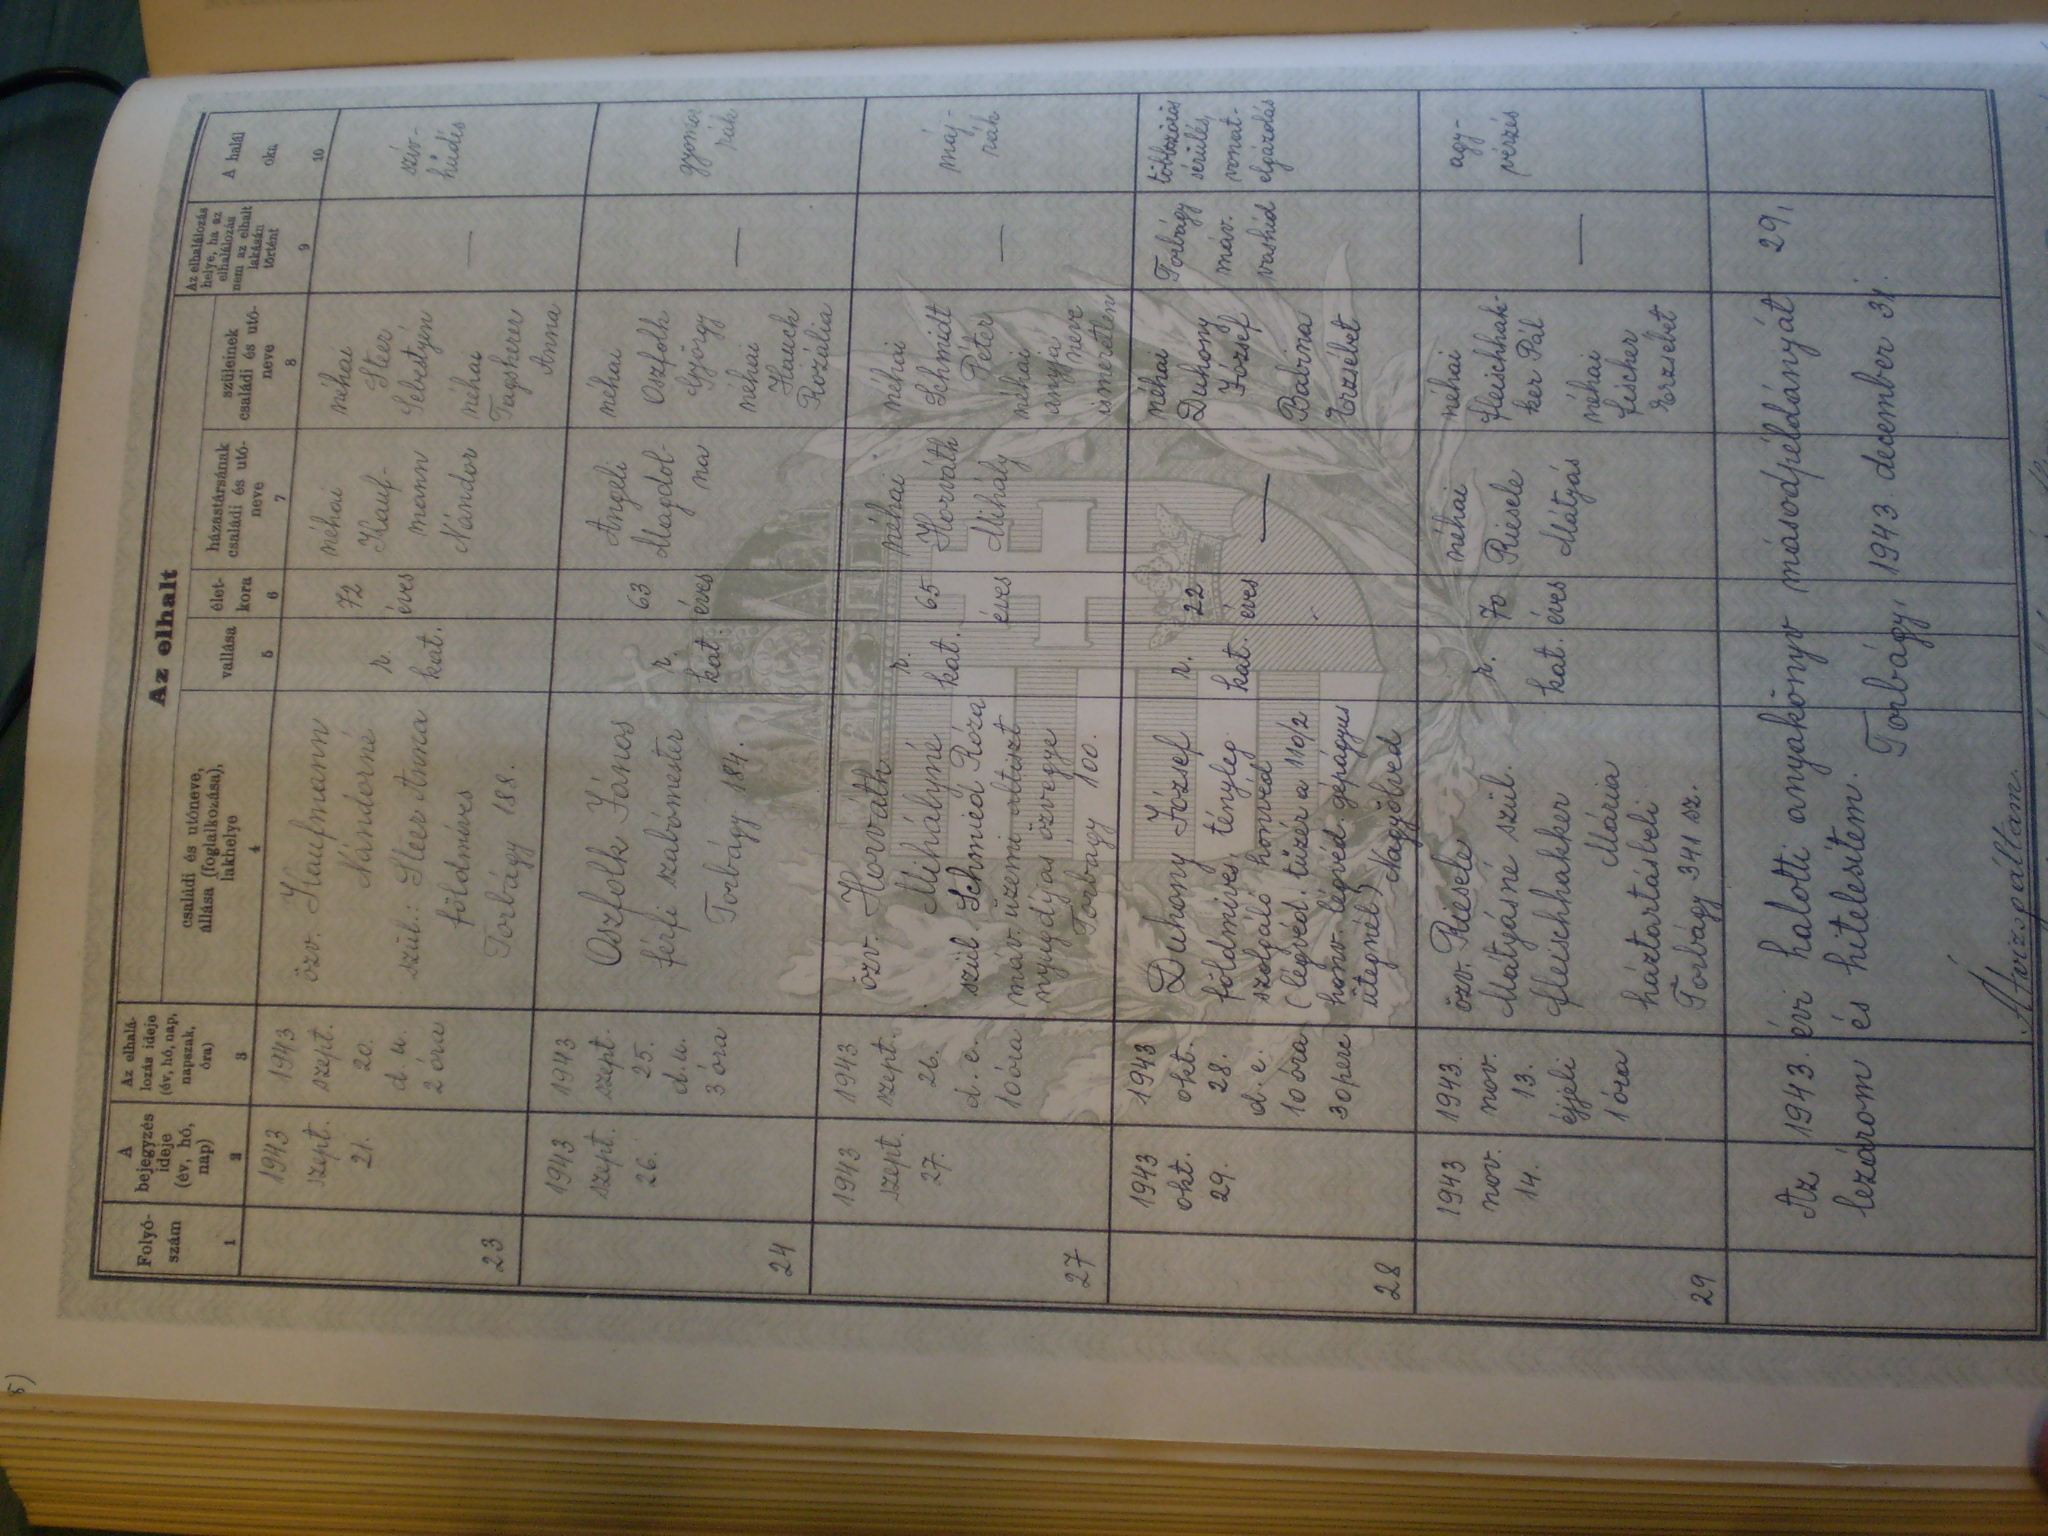 Az elhalt
Folyó-
szám
1
A
bejegyzés
ideje
(év, hó,
nap)
2
Az elhalá-
lozás ideje
(év, hó, nap,
napszak,
óra)
3
családi és utóneve,
állása (foglalkozása),
lakhelye
4
vallása
5
élet-
kora
6
házastársának
családi és utó-
neve
7
szüleinek
családi és utó-
neve
8
Az elhalálozás
helye, ha az
elhalálozás
nem az elhalt
lakásán
történt
9
A halál
oka
10
23
1943
szept.
21.
1943
szept.
20.
d. u.
2 óra
özv. Kaufmann
Nándorné
szül.: Steer Anna
földműves
Torbágy 188.
r.
kat.
72
éves
néhai
Kauf-
mann
Nándor
néhai
Steer
Sebestyén
néhai
Tagscherer
Anna
—
szív-
hűdés
24
1943
szept.
26.
1943
szept.
25.
d. u.
3 óra
Oszfolk János
férfi szabómester
Torbágy 184.
r.
kat.
63
éves
Angeli
Magdol-
na
néhai
Oszfolk
György
néhai
Hauck
Rozália
—
gyomor
rák
27
1943
szept.
27.
1943
szept.
26.
d. e.
10 óra
özv. Horváth
Mihályné
szül. Schmied Róza
máv. üzemi altiszt
nyugdíjas özvegye
Torbágy 100.
r.
kat.
65
éves
néhai
Horváth
Mihály
néhai
Schmidt
Péter
néhai
anyja neve
ismeretlen
—
máj-
rák
28
1943
okt.
29.
1943
okt.
28.
d. e.
10 óra
30 perc
Duhony József
földmíves, tényleg.
szolgáló honvéd
(légvéd. tüzér a 110/2
honv. légvéd. gépágyús
ütegnél) Nagyölved
r.
kat.
22
éves
—
néhai
Duhony
József
Babina
Erzsébet
Torbágy
máv.
vashíd
többszörös
sérülés,
vonat-
elgázolás
29
1943
nov.
14.
1943.
nov.
13.
éjjeli
1 óra
özv. Riesele
Mátyásné szül.
Fleischhakker
Mária
háztartásbeli
Torbágy 341 sz.
r.
kat.
70
éves
néhai
Riesele
Mátyás
néhai
Fleischhak-
ker Pál
néhai
Fischer
Erzsébet
—
agy-
vérzés
Az 1943. évi halotti anyakönyv másodpéldányát 29,
lezárom és hitelesítem.
Torbágy, 1943 december 31.
Átvizsgáltam.